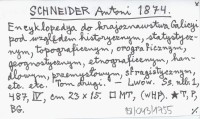 SCHNEIDER Antoni 1874.
Encyklopedya do krajoznawstwa Galicyi
pod względem historycznym, statystycz-
nym, topograficznym, orograficznym,
geognostycznym, etnograficznym, han-
dlowym, przemysłowym, sfragistycznym,
etc. etc. Tom drugi. — Lwów. Ss. nlb. 2,
487, IV, cm 23 x 15. □ MT, (WHP). ★ T, P,
BG.